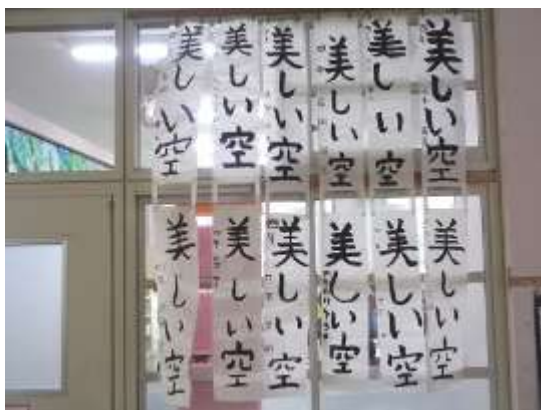 美しい空
美しい空
美しい空
美しい空
美しい空
美しい空
美しい空
美しい空
美しい空
美しい空
美しい空
美しい空